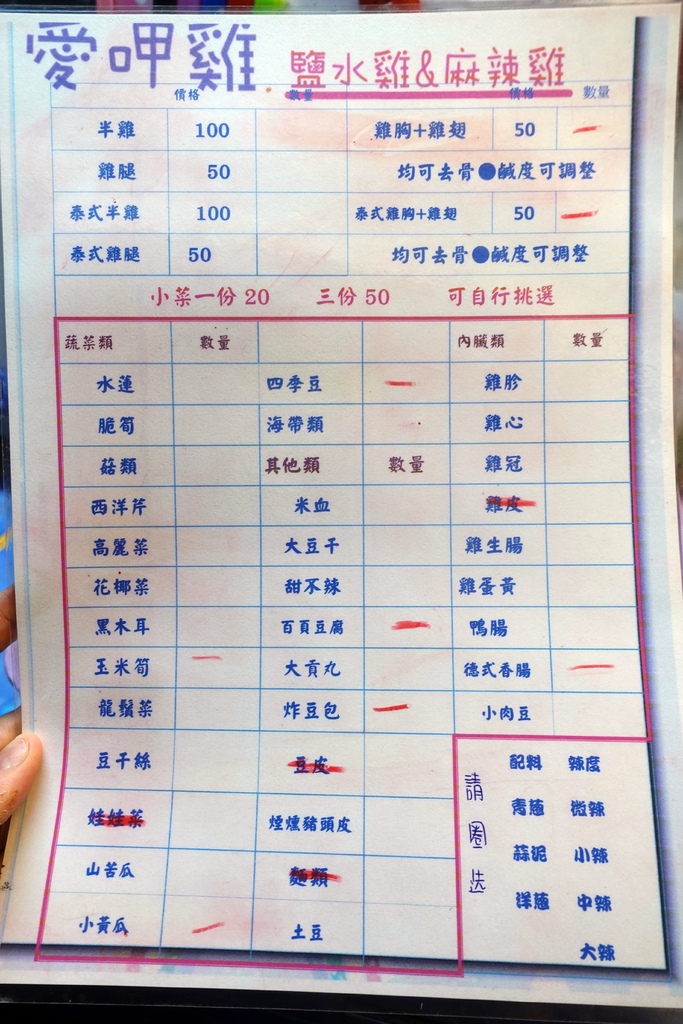 愛呷雞 鹽水雞&麻辣雞
價格 數量 價格 數量
半雞 100 雞胸+雞翅 50 一
雞腿 50 均可去骨●鹹度可調整
泰式半雞 100 泰式雞胸+雞翅 50 一
泰式雞腿 50 均可去骨●鹹度可調整
小菜一份 20 三份 50 可自行挑選
蔬菜類 數量 內臟類 數量
水蓮 四季豆 一 雞胗
脆筍 海帶類 雞心
菇類 其他類 數量 雞冠
西洋芹 米血 雞皮
高麗菜 大豆干 雞生腸
花椰菜 甜不辣 雞蛋黃
黑木耳 百頁豆腐 一 鴨腸
玉米筍 一 大貢丸 德式香腸 一
龍鬚菜 炸豆包 一 小肉豆
豆干絲 豆皮
娃娃菜 煙燻豬頭皮
山苦瓜 麵類
小黃瓜 一 土豆
請圈選
配料 辣度
青蔥 微辣
蒜泥 小辣
洋蔥 中辣
大辣